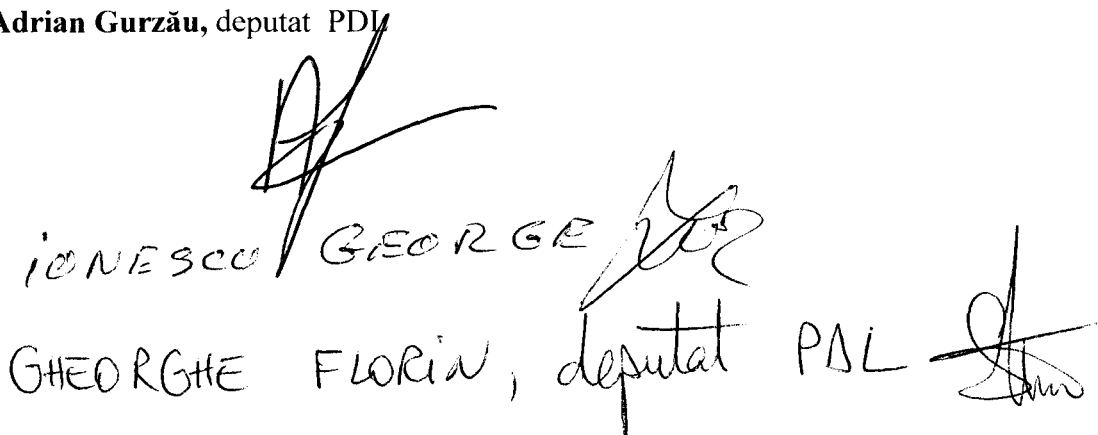 Adrian Gurzău, deputat PDL
IONESCU GEORGE
GHEORGHE FLORIN, deputat PDL